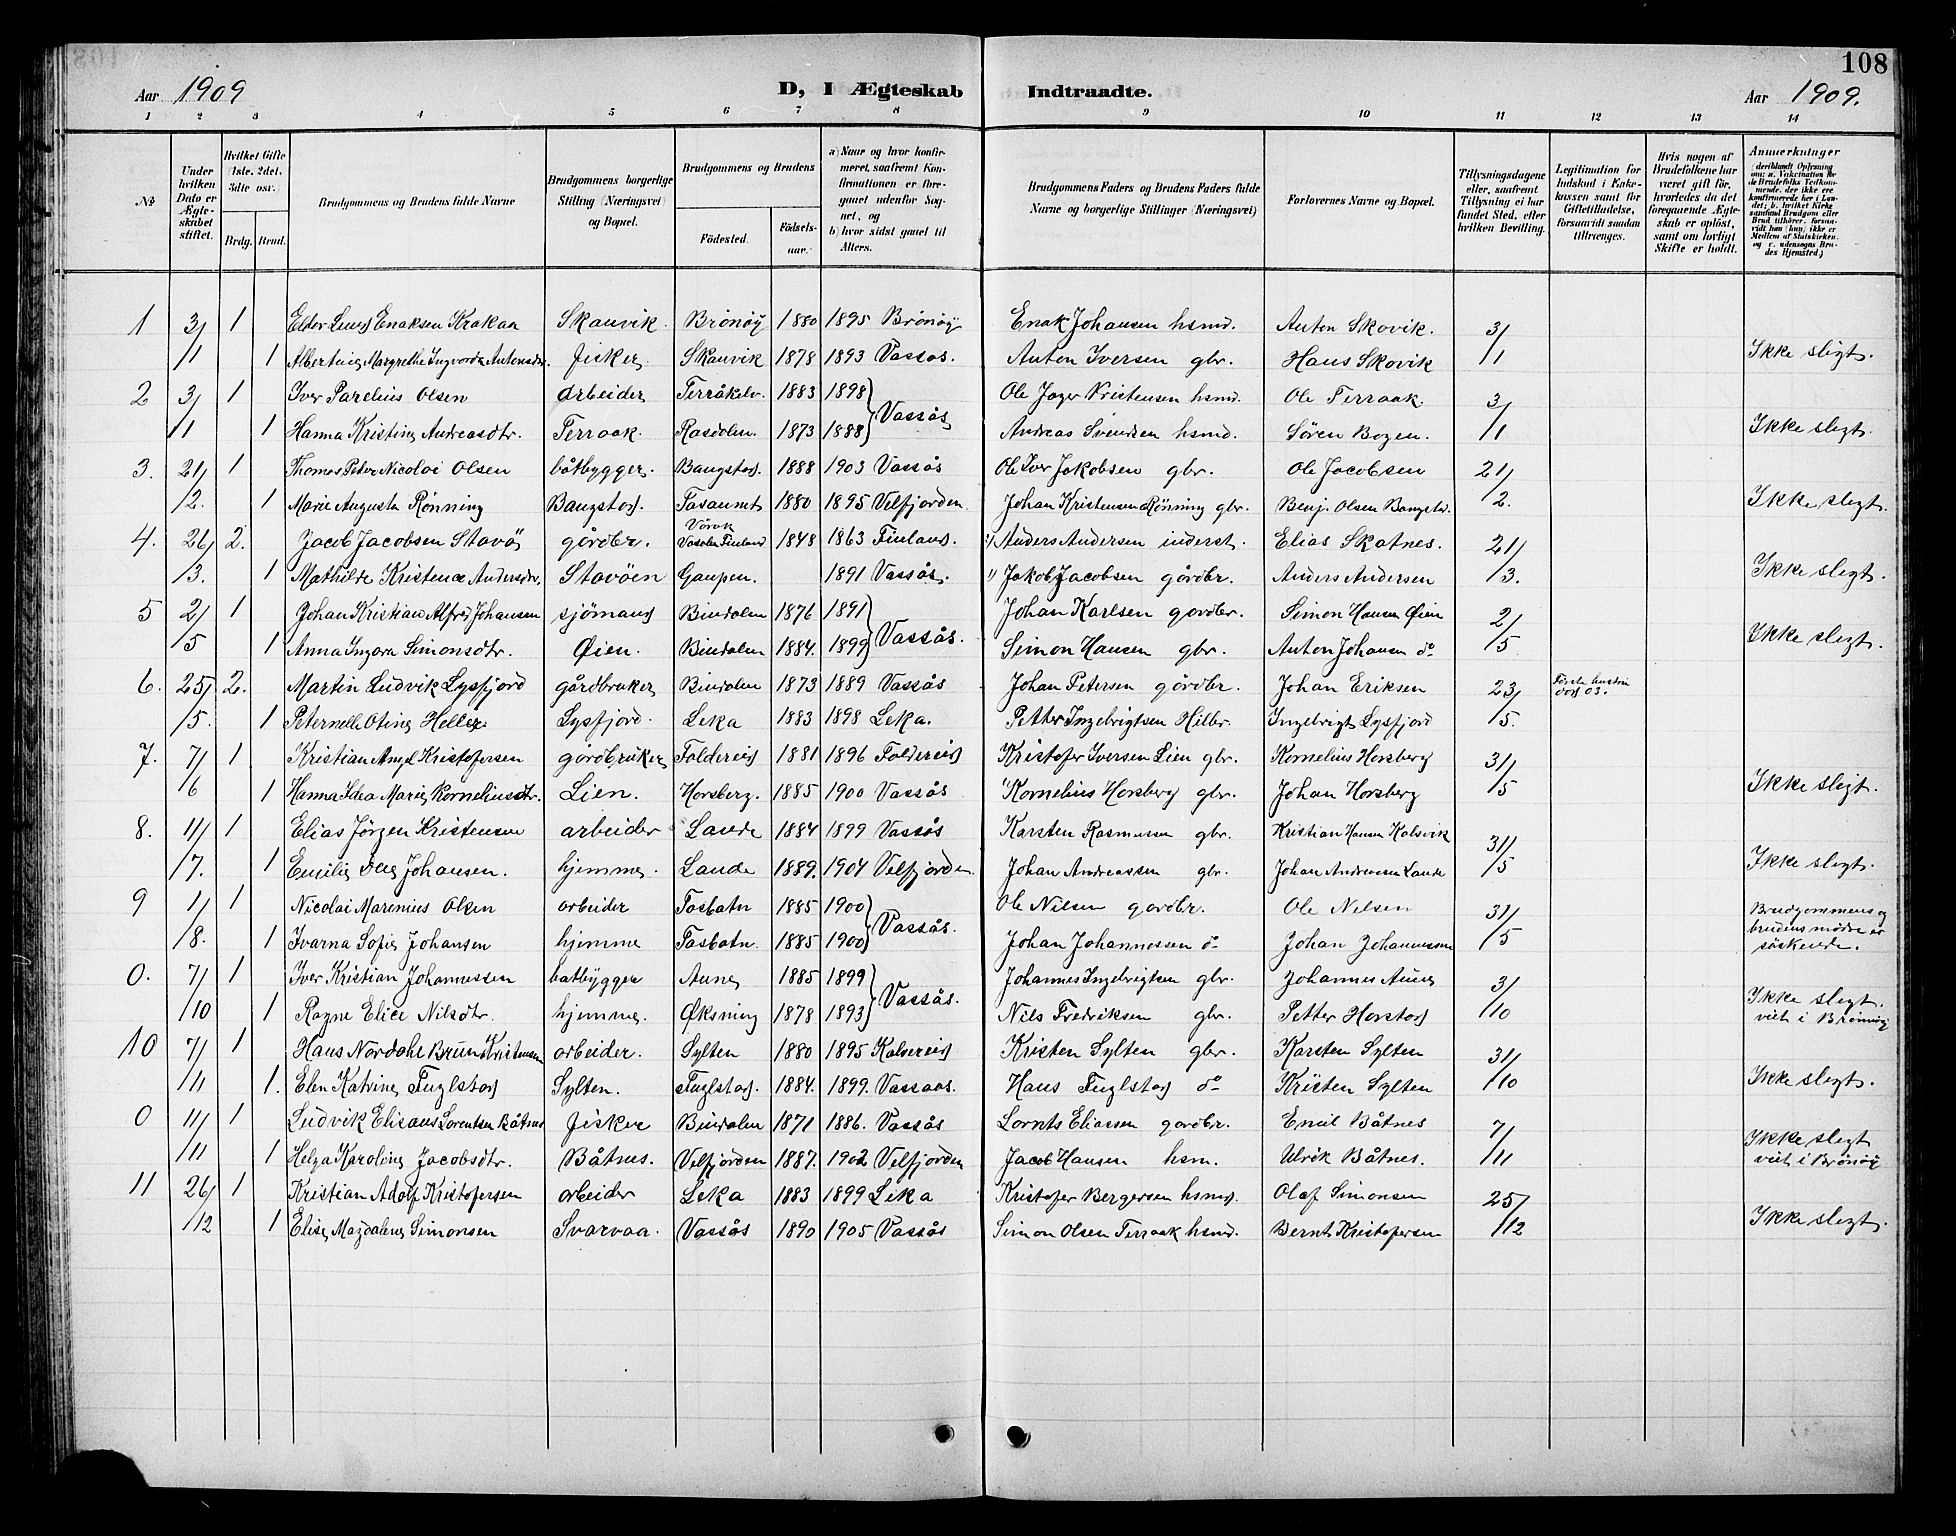 108
Aar 1909 D, I Ægteskab Indtraadte. Aar 1909.
1 2 3 4 5 6 7 8 9 10 11 12 13 14
No
Under hvilken Dato er Ægteskabet stiftet.
Hvilket Gifte (1ste, 2det, 3die osv.
Brdg. Brud.
Brudgommens og Brudens fulde Navne
Brudgommens borgerlige Stilling (Næringsvei) og Bopæl.
Brudgommens og Brudens
Fødested. Fødselsaar.
a) Naar og hvor konfirmeret, saafremt Konfirmationen er foregaaet udenfor Sognet, og
b) hvor sidst gaaet til Alters.
Brudgommens Faders og Brudens Faders fulde Navne og borgerlige Stillinger (Næringsvei)
Forlovernes Navne og Bopæl.
Tillysningsdagene eller, saafremt Tillysning ei har fundet Sted, efter hvilken Bevilling.
Legitimation for Indskud i Enkekassen samt for Giftetilladelse, forsaavidt saadan tiltrænges.
Hvis nogen af Brudefolkene har været gift før, hvorledes da det foregaaende Ægteskab er opløst, samt om lovligt Skifte er holdt.
Anmærkninger
(deriblandt Oplysning om: a. Vakcination for de Brudefolks Vedkommende, der ikke ere konfirmerede her i Landet; b. hvilket Kirkesamfund Brudgom eller Brud tilhører, forsaavidt han (hun) ikke er Medlem af Statskirken, og c. udensogns Brudes Hjemsted.)
1 3/ 1 Enaksen Krakaa Skauvik. Brönöy 1880 1895 Brönöy Enok Johansen hsmd. Anton Skovik. 3/
/1 1 Margrethe Antonsdtr. fisker Skauvik 1878 1893 Vassås. Anton Iversen gbr. Hans Skovik /1 Ikke sligt.
2 3/ 1 Iver Parelius Olsen arbeider Terråkelv. 1883 1898 Ole Kristensen hsmd. Ole Terraak. 3/
/1 1 Hanna Kristine Andreasdtr. Terraak. 1873 1888 Vassås Andreas Svendsen hsmd. Sören Bogen. /1 Ikke slegt.
3. 21/ 1 Thomas Peter Nicolai Olsen båtbygger. Bangstad. 1888 1903 Vassås Ole Iver Jakobsen gbr. Ole Jacobsen 21/
/2. 1 Marie Augusta Rønning Bangstad. 1880 1895 Velfjorden Johan Kristensen Rönning gbr. Benj. Olsen Bangstad. /2. Ikke slegt.
4. 26/ 2. Jacob Jacobsen Stavö gårdbr. Finland 1848 1863 Finland. Anders Andersen inderst. Elias Skatnes. 21/
/3. 1 Mathilde Kristence Andersdtr. Stavöen Gaupen. 1891 Vassås. Jakob Jacobsen gårdbr. Anders Andersen /3. Ikke slegt.
5 2/ 1 Johan Kristian Alfred Johansen sjömand Bindalen 1876 1891 Johan Karlsen gårdbr. Simon Hansen Øien 2/
/5 1 Anna Ingara Simonsdtr. Øien. Bindalen 1884. 1899 Vassås. Simon Hansen gbr. Anton Johansen do /5. Ikke slegt.
6. 25/ 2. Martin Ludvik Lysfjord gårdbruker Bindalen 1873 1889 Vassås Johan Petersen gårdbr. Johan Eriksen 23/ Förste hustru död 03.
/5. 1 Peternelle Otine Lysfjord. Leka 1883 1898 Leka. Petter Ingebrigtsen Ingebrigt Lysfjord /5.
7. 7/ 1 Kristian Kristofersen gårdbruker Foldereid 1881 1896 Foldereid Kristofer Iversen Lien gbr. Kornelius Horsberg 31/
/6 1 Hanna Marie Korneliusdtr. Lien. Horsberg. 1885 1900 Vassås Kornelius Horsberg gbr. Johan Horsberg /5 Ikke sligt.
8. 11/ 1 Elias Jörgen Kristensen arbeider Lande 1884 1899 Vassås Karsten Rasmussen gbr. Kristian Hansen Kalsvik 31/
/7. 1 Emilie Johansen. hjemme. Lande 1889. 1904 Velfjorden. Johan Andreassen gbr. Johan Andreassen Lande /5 Ikke slegt.
9 1/ 1 Nicolai Marenius Olsen arbeider Tosbotn 1885 1900 Ole Nilsen gårdbr. Ole Nelsen 31/ Brudgommens og
/8. 1 Ivarna Sofie Johansen hjemme Tosbotn. 1885 1900 Vassås. Johan Johannessen do Johan Johannessen /5 brudens mødre er söskende.
0. 7/ 1 Iver Kristian Johannessen batbygger Aune 1885 1899 Johannes Ingebrigtsen gbr. Johannes Aune 3/
/10 1 Ragne Elice Nilsdtr. hjemme. Øksning 1878 1893 Vassås. Nils Fredriksen gbr. Petter Horstad /10 Ikke slegt. viet i Brönnöy
10 7/ 1 Hans Nordahl Brun Kristensen arbeider. Sylten 1880 1895 Kolvereid Kristen Sylten gbr. Karsten Sylten 31/
/11 1. Elen Katrine Fuglstad Sylten. Fuglstad. 1884. 1899. Vassaas. Hans Fuglstad do Kristen Sylten /10 Ikke slegt.
0 11/ 1 Ludvik Eliseus Lorentsen Båtnes fisker Bindalen 1871 1886. Vassås Lornts Eliassen gardbr. Emil Båtnes 7/
/11 1 Helga Karoline Jacobsdtr. Båtnes. Velfjorden 1887. 1902 Velfjorden Jacob Hansen hsm. Ulrik Båtnes. /11 Ikke slegt viet i Brönöy
11 26/ 1 Kristian Adolf Kristofersen arbeider Leka 1883 1899 Leka Kristofer Bergersen hsmd. Olaf Simonsen 25/
/12 1 Elise Magdalene Simonsen Svarvaa. Vassås 1890 1905 Vassås Simon Olsen Terraak hsmd. Bernt Kristofersen /12 Ikke slegt.